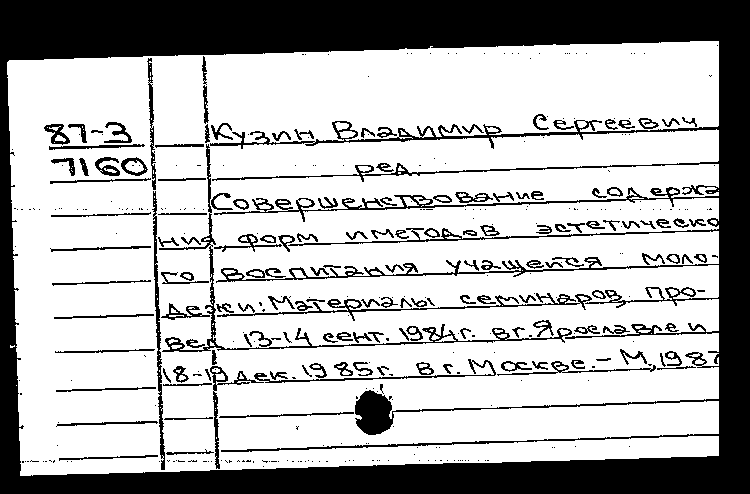 87-3 Кузин, Владимир Сергеевич
7160 ред.
Совершенствование содержа
ния, форм и методов эстетическо
го воспитания учащейся моло-
дежи: Материалы семинаров, про-
вед. 13-14 сент. 1984г. в г. Ярославле и
18-19 дек. 1985г. в г. Москве. - М, 1987